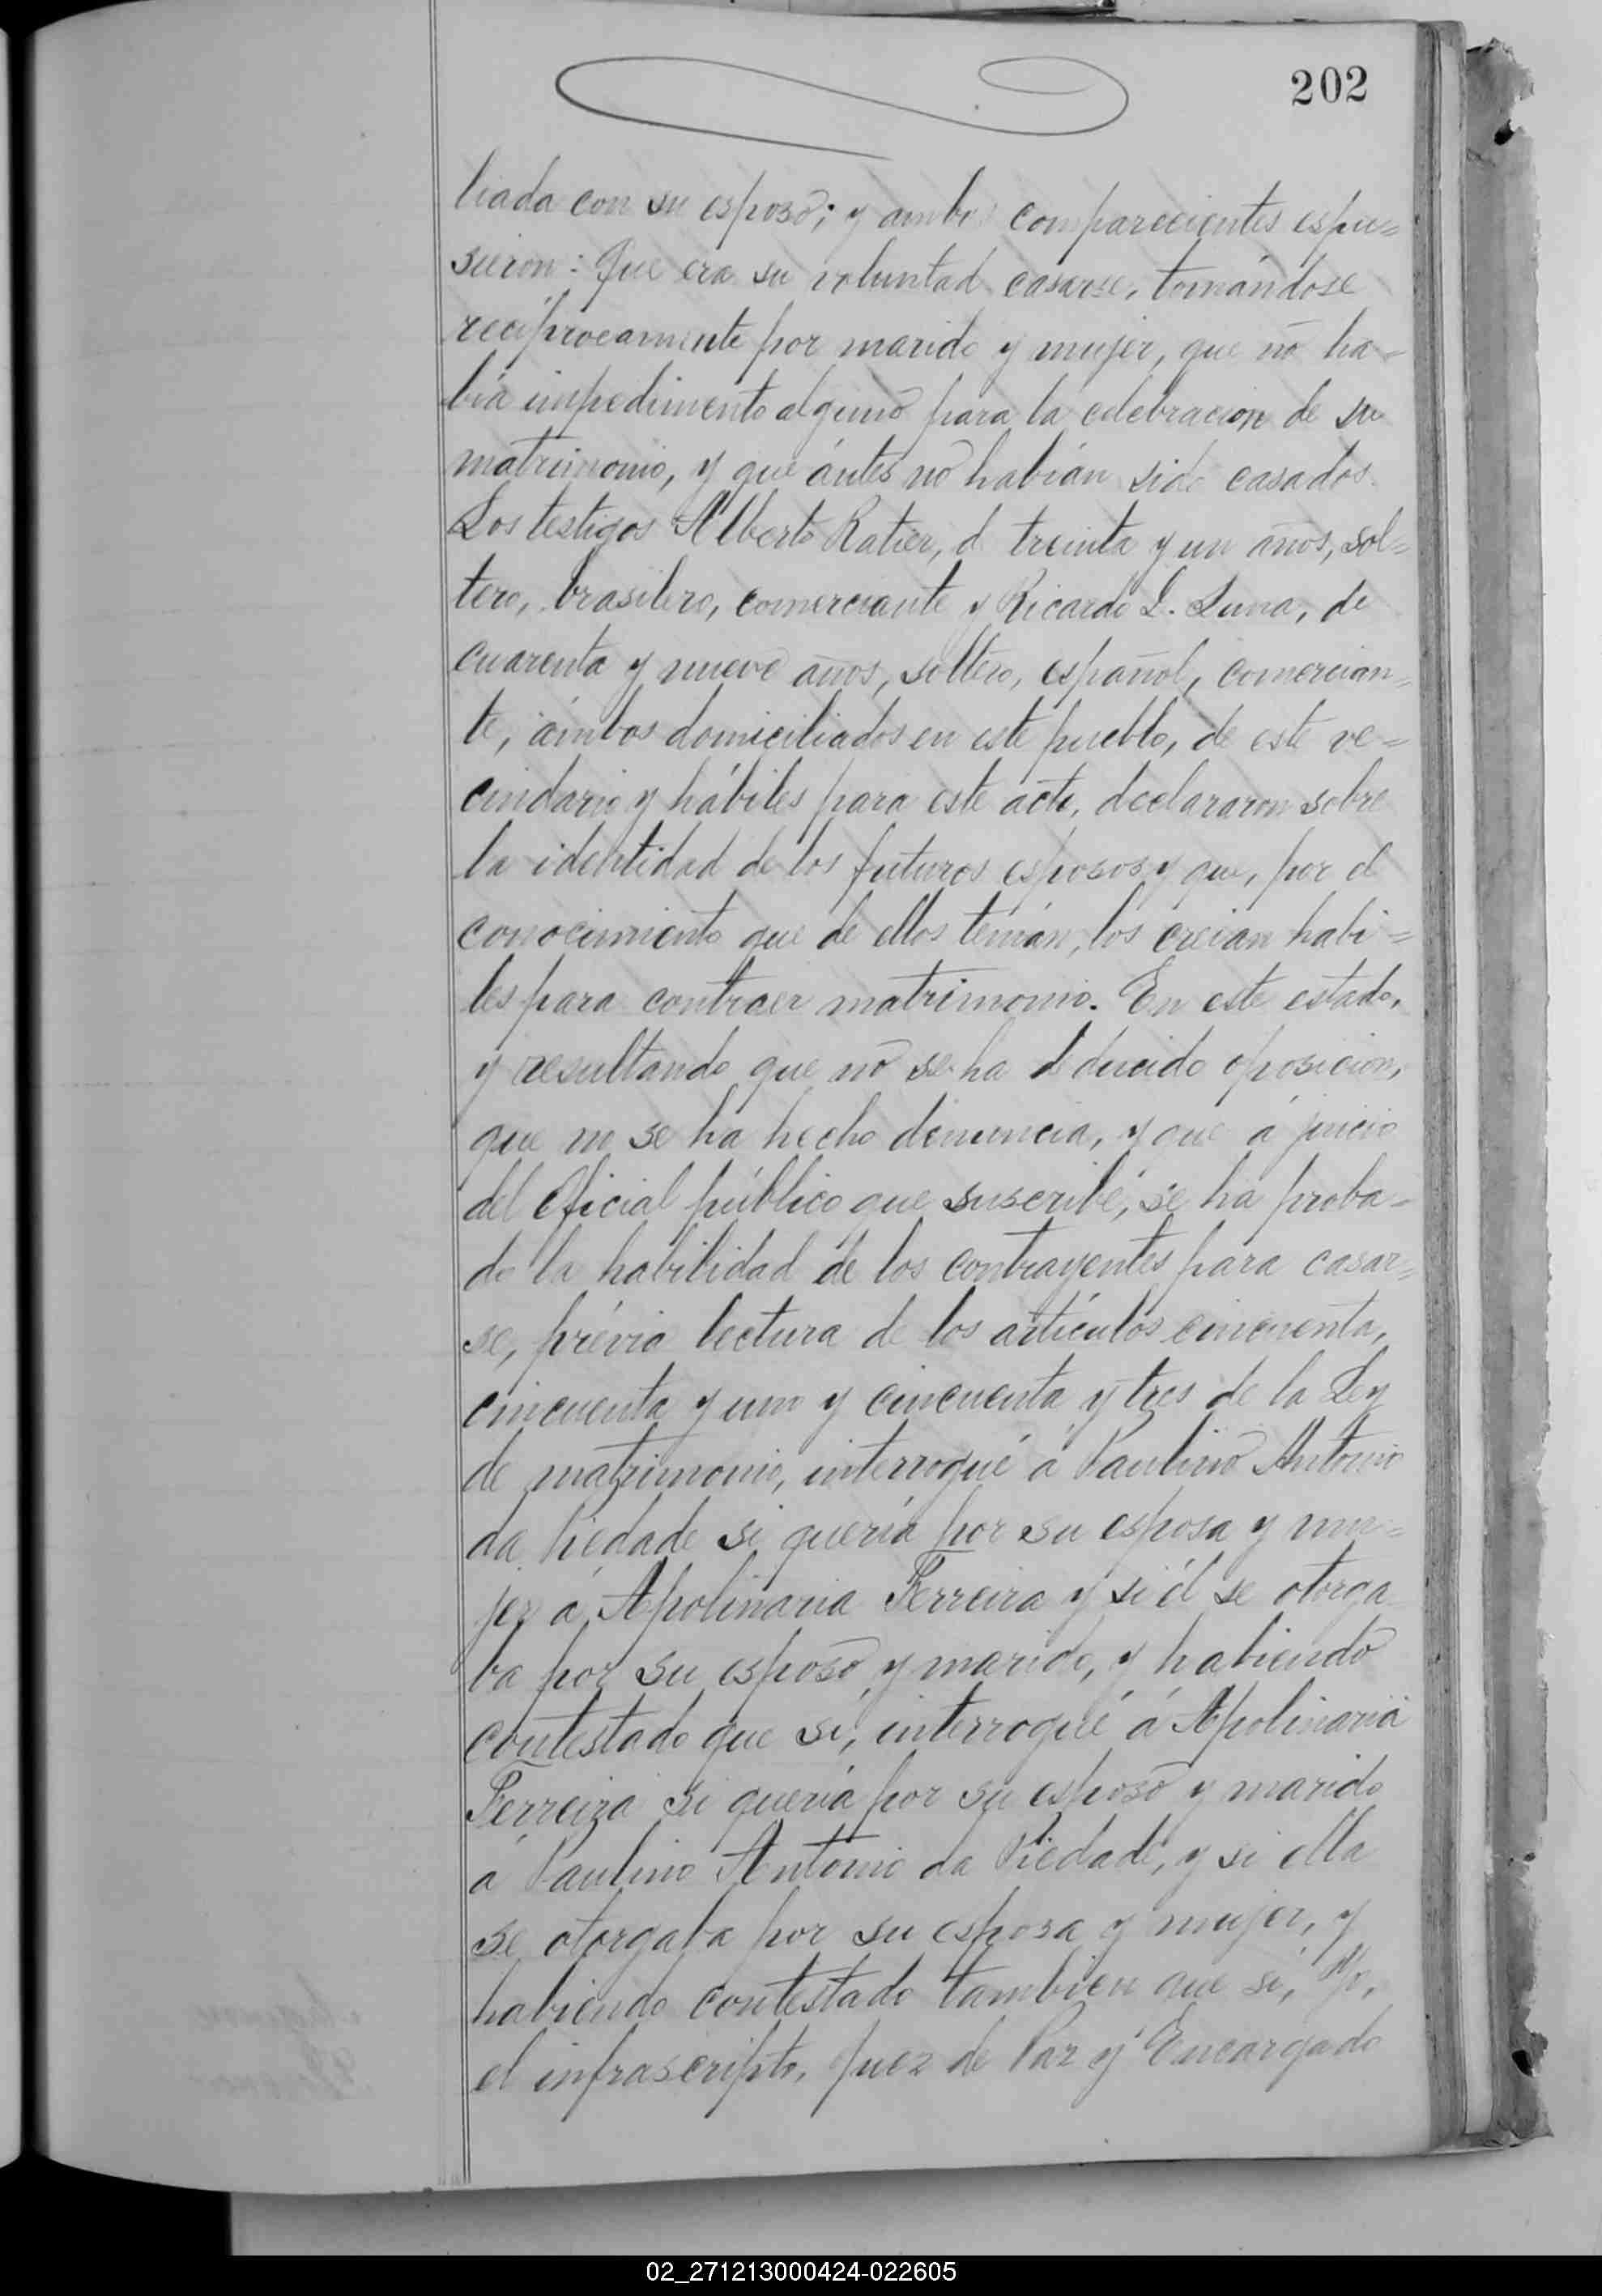 202
liada con su esposo; y ambos comparecientes espu=
sieron: Que era su voluntad casarse, tomándose
recíprocamente por marido y mujer, que no ha-
bía impedimento alguno para la celebracion de su
matrimonio, y que ántes no habían sido casados.
Los testigos Alberto Ratier, de treinta y un años, sol=
tero, brasilero, comerciante y Ricardo L. Luna, de
cuarenta y nueve años, soltero, español, comercian=
te, ámbos domiciliados en este pueblo, de este ve=
cindario y hábiles para este acto, declararon sobre
la identidad de los futuros esposos y que, por el
conocimiento que de ellos tenían, los creian habi=
les para contraer matrimonio. En este estado,
y resultando que no se ha deducido oposicion,
que no se ha hecho denuncia, y que á juicio
del Oficial público que suscribe, se ha proba-
do la habilidad de los contrayentes para casar=
se, prévia lectura de los artículos cincuenta,
cincuenta y uno y cincuenta y tres de la Ley
de matrimonio, interrogué á Paulino Antonio
da Piedade si quería por su esposa y mu=
jer á Apolinaria Ferreira y si él se otorga
ba por su esposo y marido, y habiendo
contestado que sí, interrogué á Apolinaria
Ferreira si quería por su esposo y marido
á Paulino Antonio da Piedade, y si ella
se otorgaba por su esposa y mujer, y
habiendo contestado tambien que sí, Yo,
el infrascripto, Juez de Paz y Encargado
02_271213000424-022605